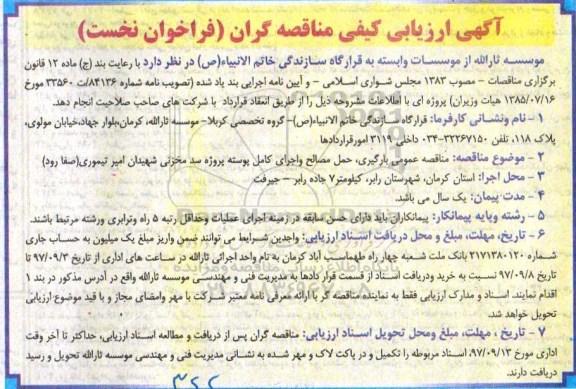 آگهی ارزیابی کیفی مناقصه گران (فراخوان نخست)
موسسه ثارالله از موسسات وابسته به قرارگاه سازندگی خاتم الانبیاء(ص) در نظر دارد با رعایت بند (ج) ماده ۱۲ قانون
برگزاری مناقصات - مصوب ۱۳۸۳ مجلس شورای اسلامی - و آیین نامه اجرایی بند یاد شده (تصویب نامه شماره ۸۴۱۳۶/ت ۳۳۵۶۰ مورخ
۱۳۸۵/۰۷/۱۶ هیات وزیران) پروژه ای با اطلاعات مشروحه ذیل را از طریق انعقاد قرارداد با شرکت های صاحب صلاحیت انجام دهد.
۱ - نام ونشانی کارفرما: قرارگاه سازندگی خاتم الانبیاء(ص)- گروه تخصصی کربلا- موسسه ثارالله، کرمان،بلوار جهاد،خیابان مولوی،
پلاک ۱۱۸، تلفن ۳۲۲۶۷۱۵۰-۰۳۴ داخلی ۳۱۱۹ امورقراردادها
۲ - موضوع مناقصه: مناقصه عمومی بارگیری، حمل مصالح واجرای کامل پوسته پروژه سد مخزنی شهیدان امیر تیموری(صفا رود)
۳ - محل اجرا: استان کرمان، شهرستان رابر، کیلومتر۷ جاده رابر - جیرفت
۴ - مدت پیمان: یک سال می باشد.
۵ - رشته وپایه پیمانکار: پیمانکاران باید دارای حسن سابقه در زمینه اجرای عملیات وحداقل رتبه ۵ راه وترابری ورشته مرتبط باشند.
۶ - تاریخ، مهلت، مبلغ و محل دریافت اسناد ارزیابی: واجدین شرایط می توانند ضمن واریز مبلغ یک میلیون به حساب جاری
شماره ۲۱۷۱۳۸۰۱۲۰ بانک ملت شعبه چهار راه طهماسب آباد کرمان به نام واحد اجرائی ثارالله در ساعت های اداری از تاریخ ۹۷/۰۹/۳ تا
تاریخ ۹۷/۰۹/۸ نسبت به خرید ودریافت اسناد از قسمت قرار دادها به مدیریت فنی و مهندسی موسسه ثارالله واقع در آدرس مذکور در بند ۱
اقدام نمایند. اسناد و مدارک ارزیابی فقط به نماینده مناقصه گر با ارائه معرفی نامه معتبر شرکت با مهر وامضای مجاز و با قید موضوع ارزیابی
تحویل خواهد شد.
۷ - تاریخ ، مهلت، مبلغ ومحل تحویل اسناد ارزیابی: مناقصه گران پس از دریافت و مطالعه اسناد ارزیابی، حداکثر تا آخر وقت
اداری مورخ ۹۷/۰۹/۱۳، اسناد مربوطه را تکمیل و در پاکت لاک و مهر شده به نشانی مدیریت فنی و مهندسی موسسه ثارالله تحویل و رسید
دریافت دارند.